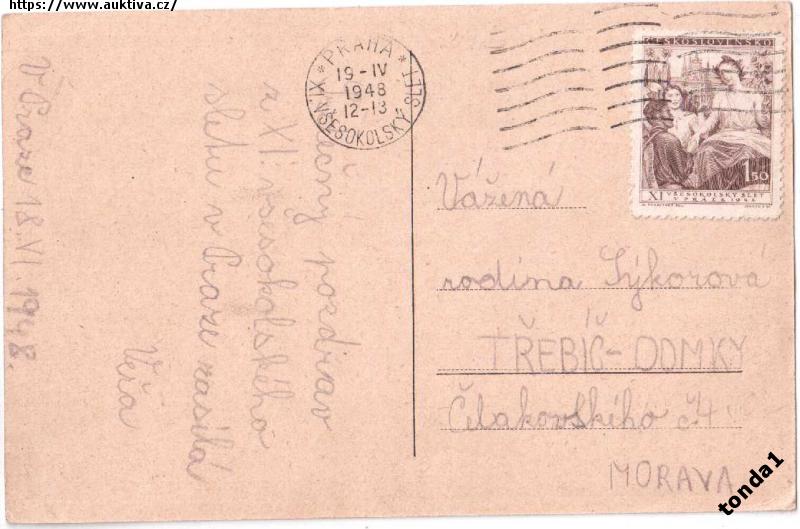 https://www.auktiva.cz/
V Praze 18.VI.1948.
Srdečný pozdrav
z XI. všesokolského
sletu v Praze zasílá
Věra
PRAHA
19-IV
1948
12-13
XI. VŠESOKOLSKÝ SLET
ČESKOSLOVENSKO
1,50
XI. VŠESOKOLSKÝ SLET
V PRAZE 1948
Vážená
rodina Sýkorová
TŘEBÍČ-DOMKY
Čelakovského č.4
MORAVA
tonda1